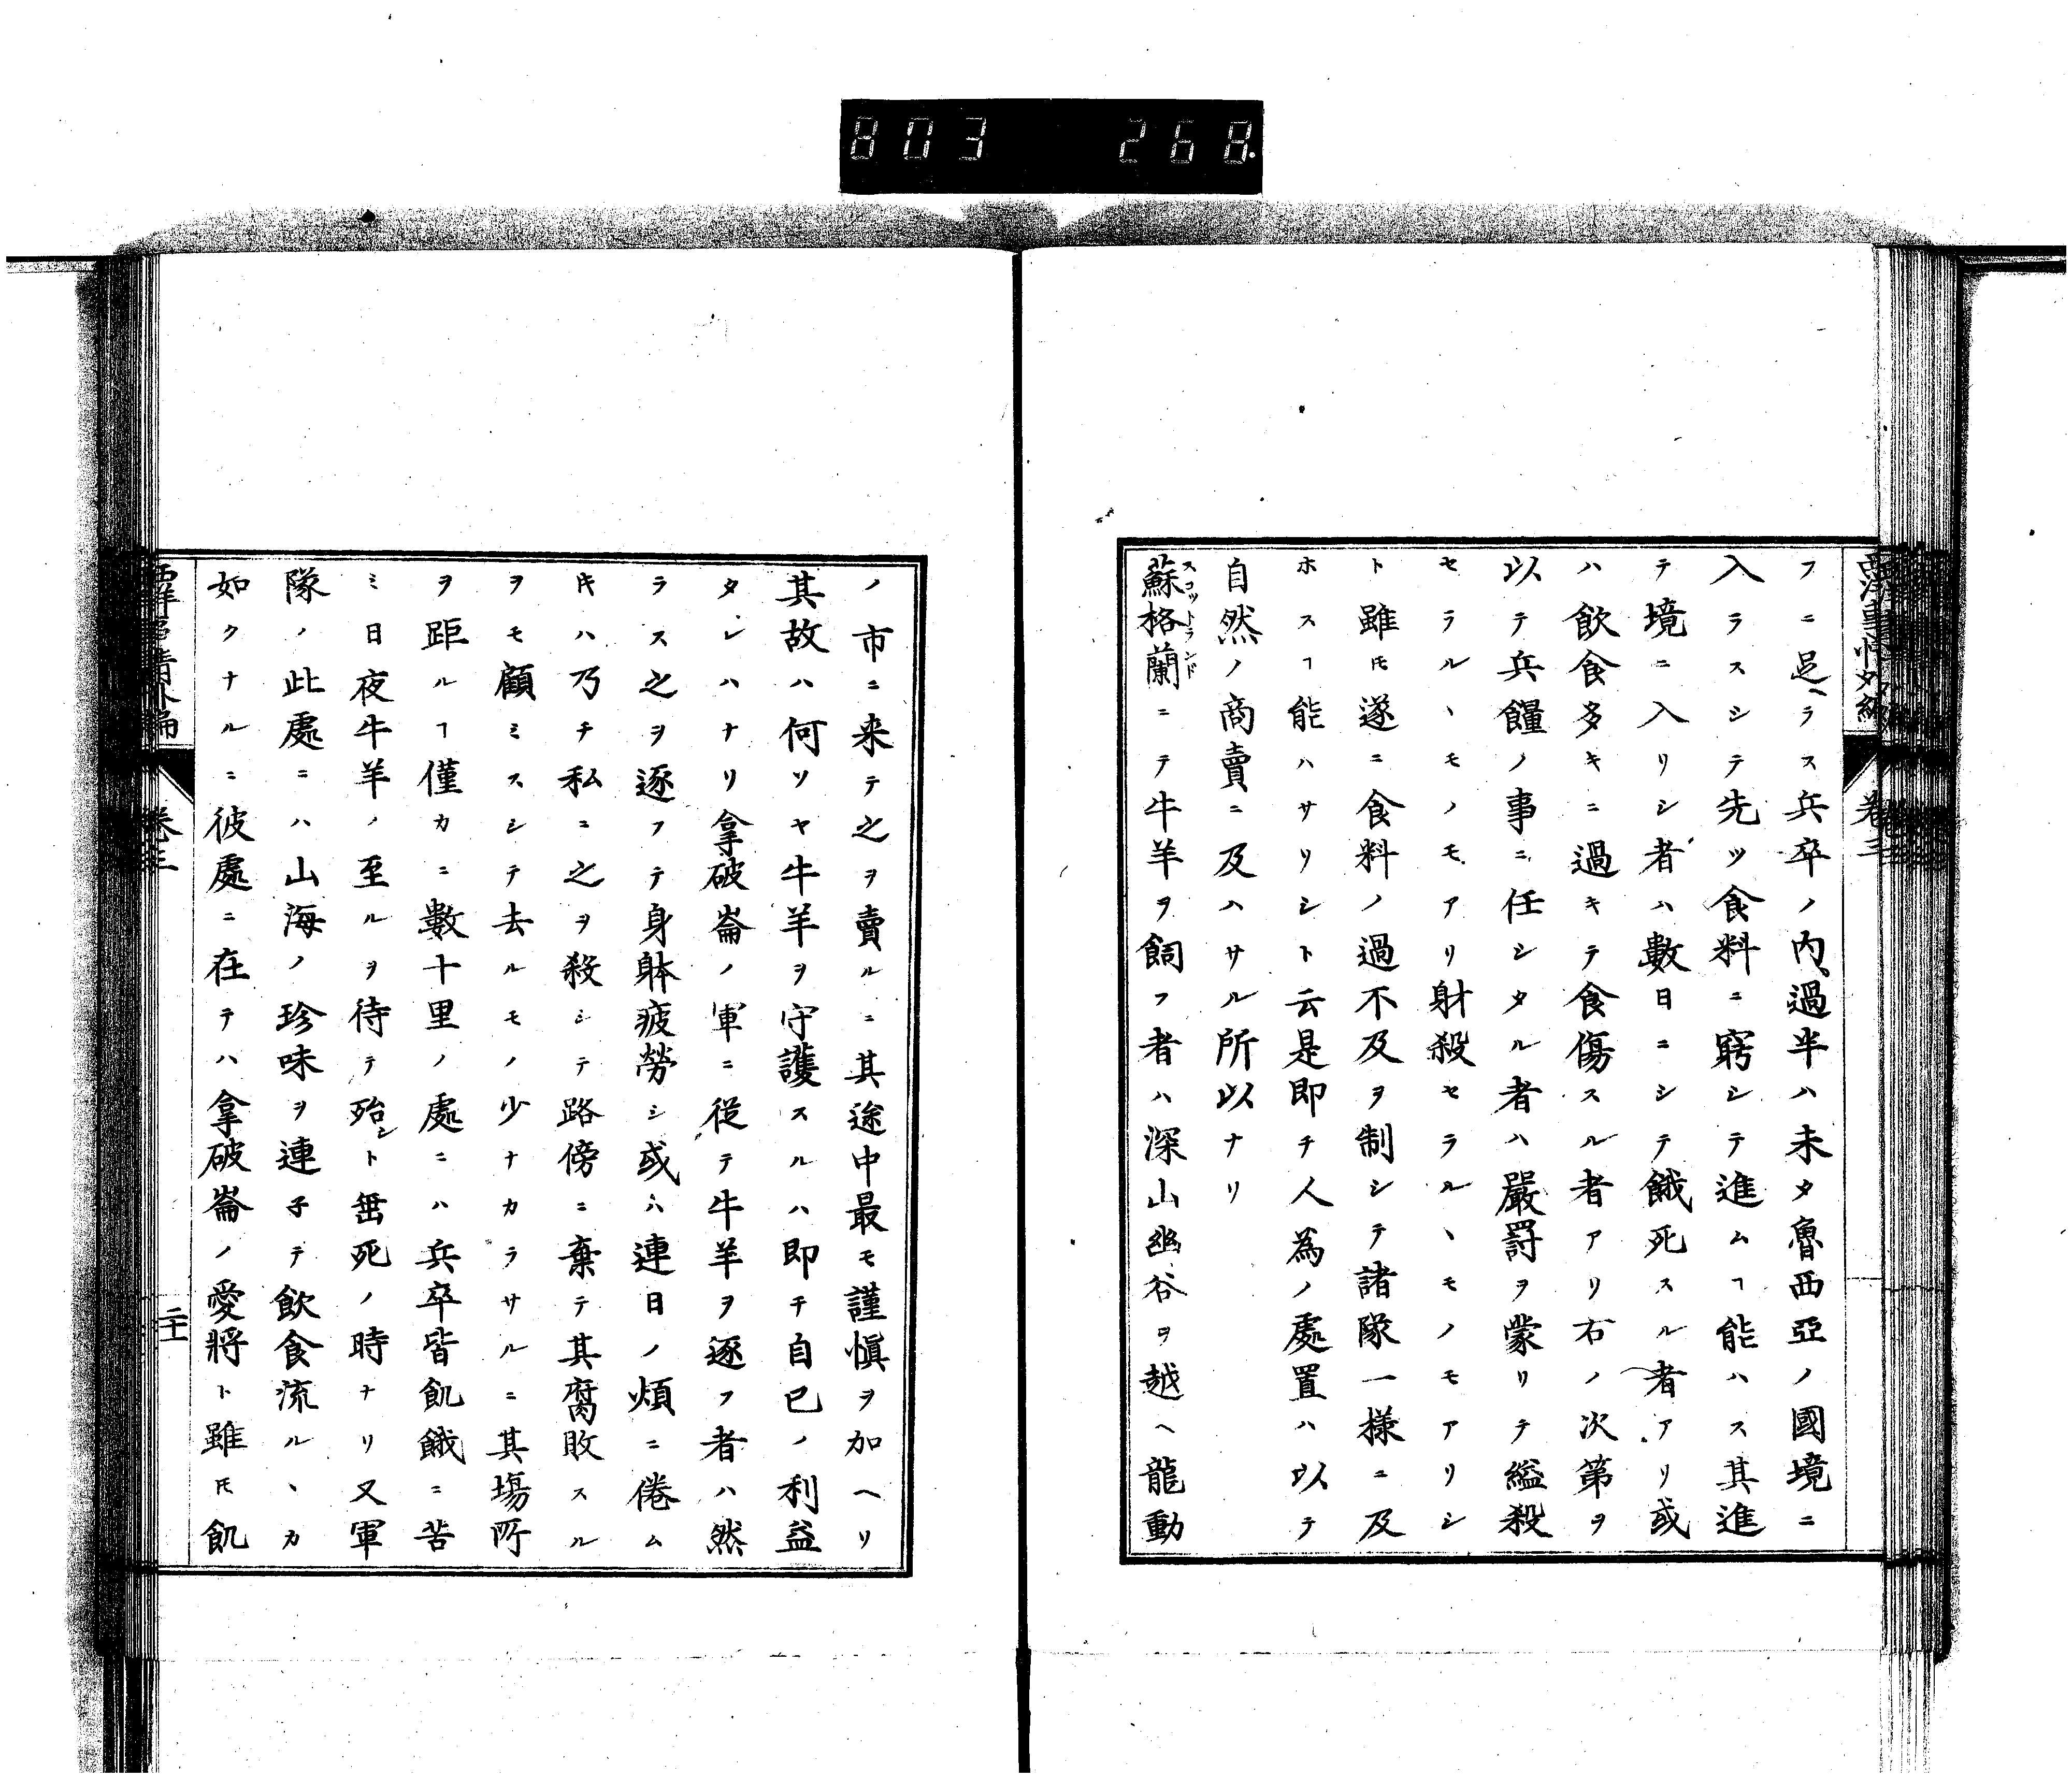 803 268
西洋事情外編 卷三
フニ足ラス兵卒ノ内過半ハ未タ魯西亞ノ國境ニ
入ラスシテ先ツ食料ニ窮シテ進ムヿ能ハス其進
テ境ニ入リシ者ハ數日ニシテ餓死スル者アリ或
ハ飲食多キニ過キテ食傷スル者アリ右ノ次第ヲ
以テ兵饘ノ事ニ任シタル者ハ嚴罸ヲ蒙リテ縊殺
セラルヽモノモアリ射殺セラルヽモノモアリシ
ト雖𪜈遂ニ食料ノ過不及ヲ制シテ諸隊一樣ニ及
ホスヿ能ハサリシト云是即チ人為ノ處置ハ以テ
自然ノ商賣ニ及ハサル所以ナリ
蘇格蘭スコットランドニテ牛羊ヲ飼フ者ハ深山幽谷ヲ越ヘ龍動
ノ市ニ来テ之ヲ賣ルニ其途中最モ謹慎ヲ加ヘリ
其故ハ何ソヤ牛羊ヲ守護スルハ即チ自己ノ利益
タレハナリ拿破崙ノ軍ニ從テ牛羊ヲ逐フ者ハ然
ラス之ヲ逐フテ身躰疲勞シ或ハ連日ノ煩ニ倦ム
𪜈ハ乃チ私ニ之ヲ殺シテ路傍ニ棄テ其腐敗スル
ヲモ顧ミスシテ去ルモノ少ナカラサルニ其塲所
ヲ距ルヿ僅カニ數十里ノ處ニハ兵卒皆飢餓ニ苦
ミ日夜牛羊ノ至ルヲ待テ殆シト垂死ノ時ナリ又軍
隊ノ此處ニハ山海ノ珍味ヲ連子テ飲食流ルヽカ
如クナルニ彼處ニ在テハ拿破崙ノ愛將ト雖𪜈飢
西洋事情外編 卷三 二十